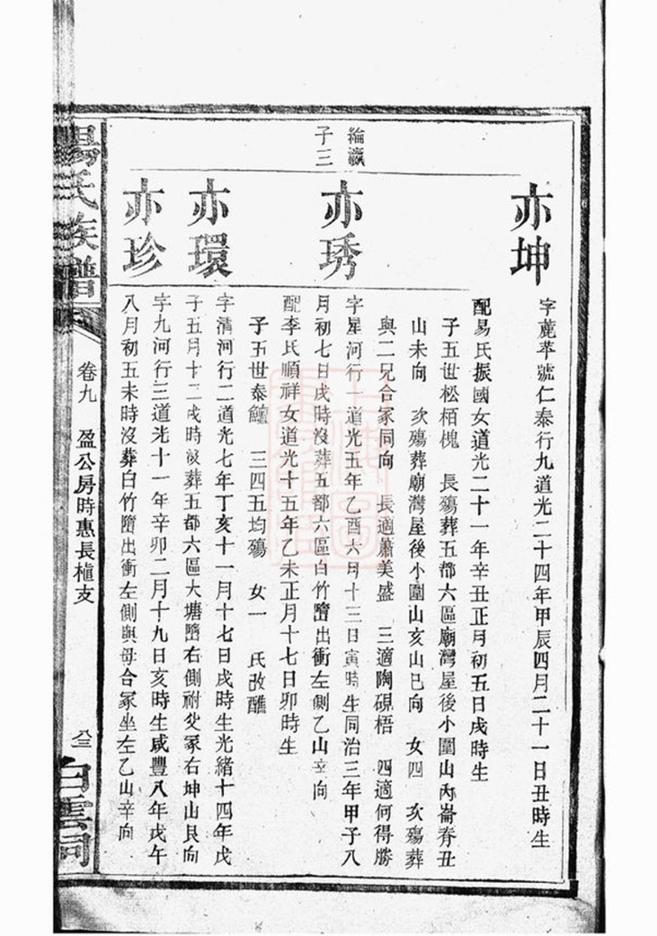 亦坤
字蔍苹號仁泰行九道光二十四年甲辰四月二十一日丑時生
配易氏振國女道光二十一年辛丑正月初五日戌時生
子五世松栢槐　長殤葬五都六區廟灣屋後小圍山丙崙脊丑
山未向　次殤葬廟灣屋後小圍山亥山巳向　女四　次殤葬
與二兄合冢同向　長適蕭美盛　三適陶硯梧　四適何得勝
綸瀛
子三
亦琇
字星河行一道光五年乙酉六月十三日寅時生同治三年甲子八
月初七日戌時沒葬五都六區白竹㙮出衝左側乙山辛向
配李氏順祥女道光十五年乙未正月十七日卯時生
子五世泰　三四五均殤　女一　氏改醮
亦環
字清河行二道光七年丁亥十一月十七日戌時生光緒十四年戊
子五月十二戌時沒葬五都六區大塘㙮右側祔父冢右坤山艮向
亦珍
字九河行三道光十一年辛卯二月十九日亥時生咸豐八年戊午
八月初五未時沒葬白竹㙮出衝左側與母合冢坐左乙山辛向
楊氏族譜
卷九　盈公房時惠長植支
八三
白雲祠